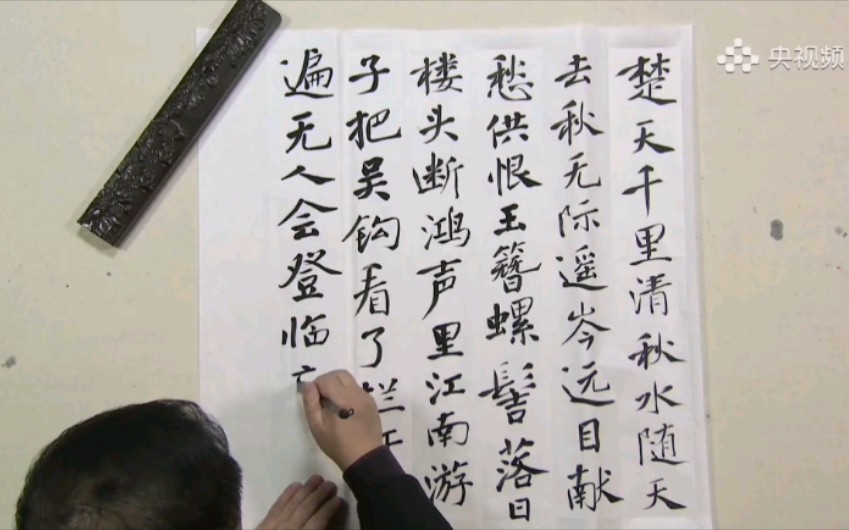 楚天千里清秋水随天
去秋无际遥岑远目献
愁供恨玉簪螺髻落日
楼头断鸿声里江南游
子把吴钩看了栏
遍无人会登临
央视频